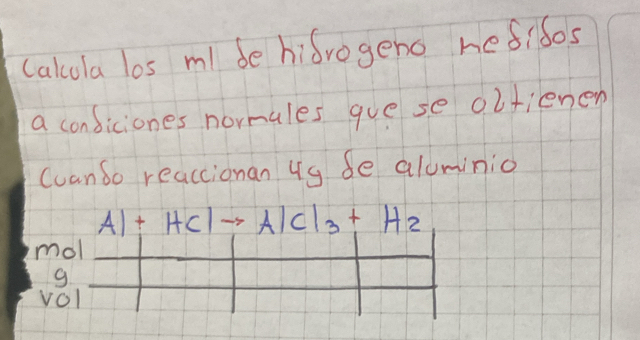 Calcula los ml de hidrogeno medidos
a condiciones normales que se obtienen
Cuando reaccionan 4g de aluminio
Al + HCl → AlCl3 + H2
mol
g
vol